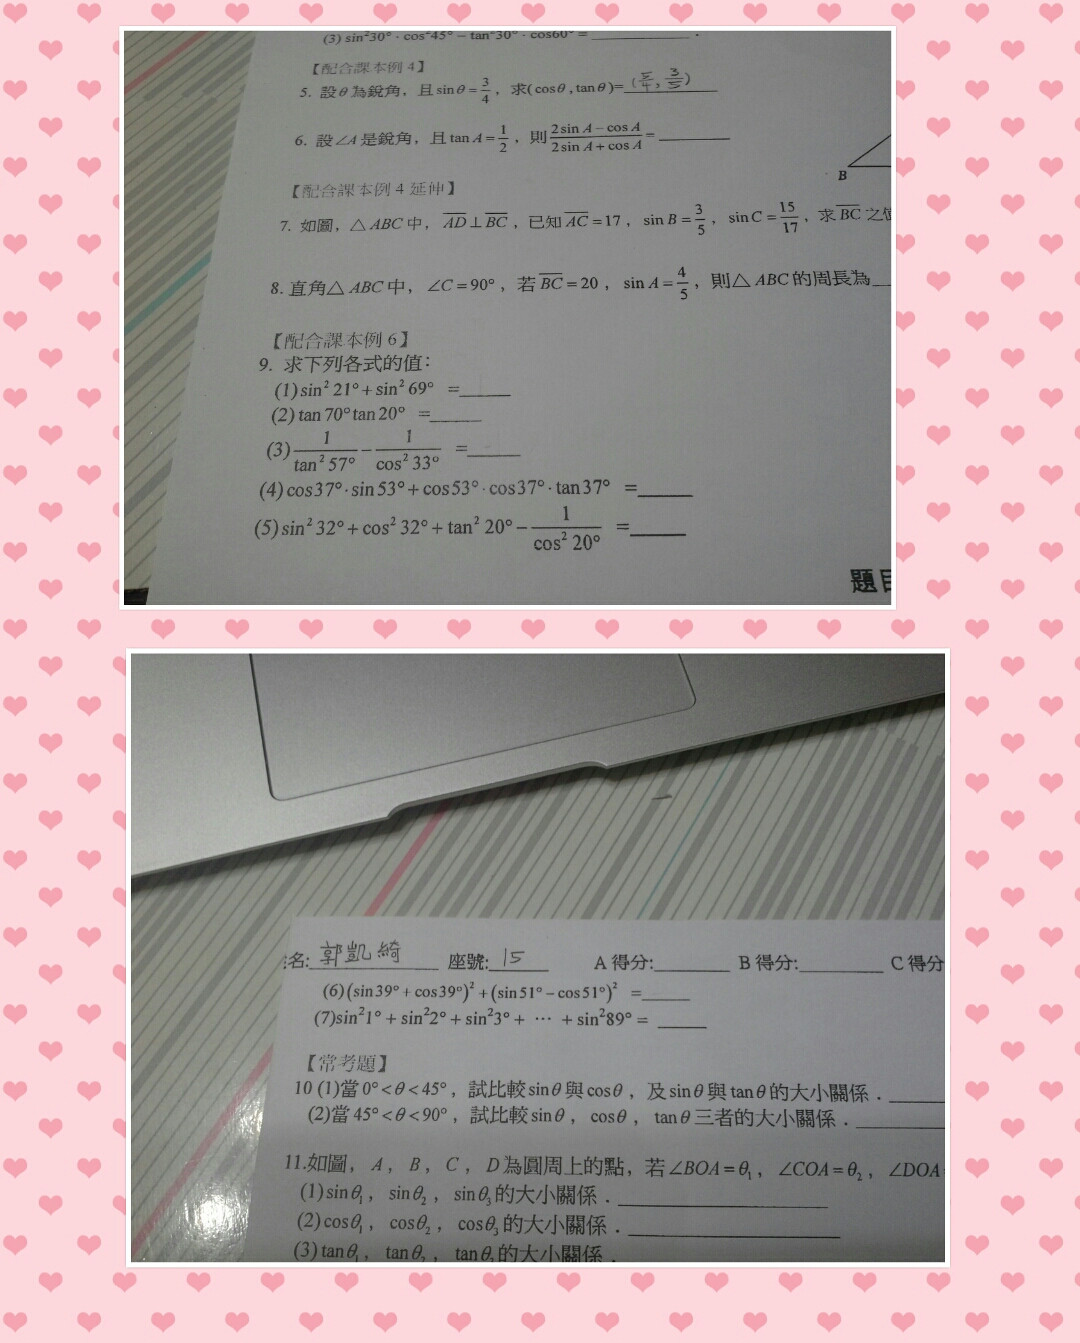 (3) sin²30°·cos²45°－tan²30°·cos60°=________.
【配合課本例 4】
5. 設θ為銳角，且 sinθ=3/4，求(cosθ,tanθ)=
6. 設∠A是銳角，且 tan A=1/2，則 (2sin A－cos A)/(2sin A+cos A)=________
B
【配合課本例 4 延伸】
7. 如圖，△ABC 中，AD⊥BC，已知AC=17，sin B=3/5，sin C=15/17，求BC之值
8. 直角△ABC中，∠C=90°，若BC=20，sin A=4/5，則△ABC的周長為__
【配合課本例 6】
9. 求下列各式的值：
(1) sin² 21°+sin² 69° =____
(2) tan 70° tan 20° =____
(3) 1/tan² 57° － 1/cos² 33° =____
(4) cos37°·sin53°+cos53°·cos37°·tan37° =____
(5) sin² 32°+cos² 32°+tan² 20°－1/cos² 20° =____
題目
名: 郭凱綺 座號: 15 A 得分:______ B 得分:______ C 得分
(6) (sin39°+cos39°)²+(sin51°－cos51°)² =____
(7) sin²1°+sin²2°+sin²3°+ … +sin²89° = ____
【常考題】
10 (1)當 0°<θ<45°，試比較 sinθ 與 cosθ，及 sinθ 與 tanθ 的大小關係．____
(2)當 45°<θ<90°，試比較 sinθ，cosθ，tanθ 三者的大小關係．____
11.如圖，A，B，C，D為圓周上的點，若∠BOA=θ₁，∠COA=θ₂，∠DOA
(1) sinθ₁，sinθ₂，sinθ₃的大小關係．____
(2) cosθ₁，cosθ₂，cosθ₃的大小關係．____
(3) tanθ₁，tanθ₂，tanθ₃的大小關係．